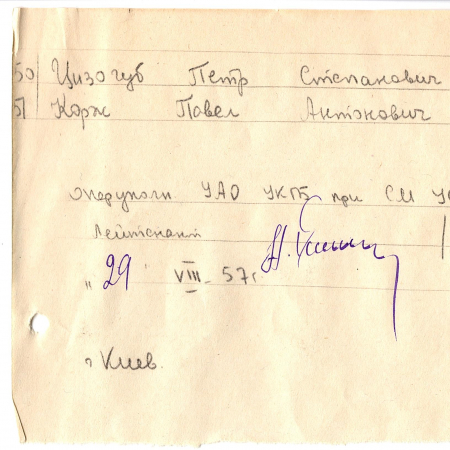 50/ Цизогуб Петр Степанович
51 Корж Павел Антонович
Оперуполн. УАО УКГБ при СМ
Лейтенант
„ 29 " VIII - 57 г.
г Киев.